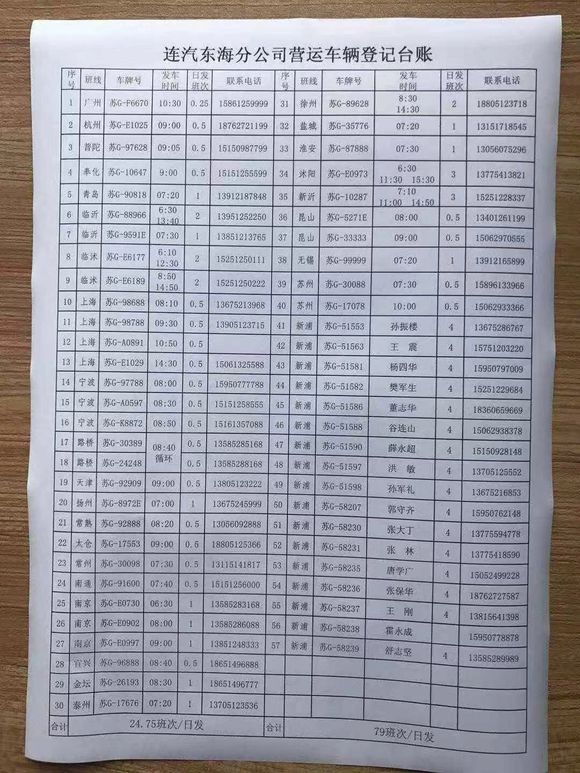 连汽东海分公司营运车辆登记台账
序号 班线 车牌号 发车时间 日发班次 联系电话 序号 班线 车牌号 发车时间 日发班次 联系电话
1 广州 苏G-F6670 10:30 0.25 15861259999 31 徐州 苏G-89628 8:30 14:30 2 18805123718
2 杭州 苏G-E1025 09:00 0.5 18762721199 32 盐城 苏G-35776 07:20 1 13151718545
3 普陀 苏G-97628 09:05 0.5 15150987799 33 淮安 苏G-87888 07:30 1 13056075296
4 奉化 苏G-10647 9:00 0.5 15151255599 34 沭阳 苏G-E0973 6:30 11:30 15:30 3 13775413821
5 青岛 苏G-90818 07:20 1 13912187848 35 新沂 苏G-10287 7:10 11:00 14:50 3 15251228337
6 临沂 苏G-88966 6:30 13:40 2 13951252250 36 昆山 苏G-5271E 08:00 0.5 13401261199
7 临沂 苏G-9591E 07:30 1 13851213765 37 昆山 苏G-33333 09:00 0.5 15062970555
8 临沭 苏G-E6177 6:10 12:30 2 15251250111 38 无锡 苏G-99999 07:20 1 13912165899
9 临沭 苏G-E6189 8:50 14:50 2 15251250222 39 苏州 苏G-30088 07:30 0.5 15896133966
10 上海 苏G-98688 08:10 0.5 13675213968 40 苏州 苏G-17078 10:00 0.5 15062933366
11 上海 苏G-98788 09:30 0.5 13905123715 41 新浦 苏G-51553 孙振楼 4 13675286767
12 上海 苏G-A0891 10:50 0.5 42 新浦 苏G-51563 王震 4 15751203220
13 上海 苏G-E1029 14:30 0.5 15061325588 43 新浦 苏G-51581 杨四华 4 15950797009
14 宁波 苏G-97788 08:00 0.5 15950777788 44 新浦 苏G-51582 樊军生 4 15251229684
15 宁波 苏G-A0597 08:30 0.5 15151258555 45 新浦 苏G-51586 董志华 4 18360659669
16 宁波 苏G-K8872 08:50 0.5 15161357088 46 新浦 苏G-51588 谷连山 4 15062938378
17 路桥 苏G-30389 08:40 循环 0.5 13585285168 47 新浦 苏G-51590 薛永超 4 15150928148
18 路桥 苏G-24248 0.5 13585288168 48 新浦 苏G-51597 洪敏 4 13705125552
19 天津 苏G-92909 09:00 0.5 13805123222 49 新浦 苏G-51598 孙军礼 4 13675216853
20 扬州 苏G-8972E 07:00 1 13675245999 50 新浦 苏G-58207 郭守齐 4 15950762148
21 常熟 苏G-92888 08:20 0.5 13056092888 51 新浦 苏G-58230 张大丁 4 13775594778
22 太仓 苏G-17553 09:00 0.5 18805125366 52 新浦 苏G-58231 张林 4 13775418590
23 常州 苏G-30098 07:30 0.5 13115141817 53 新浦 苏G-58235 唐学广 4 15052499228
24 南通 苏G-91600 07:40 0.5 15151256000 54 新浦 苏G-58236 张保华 4 18762727587
25 南京 苏G-E0730 06:30 1 13585283168 55 新浦 苏G-58237 王刚 4 13815641398
26 南京 苏G-E0902 08:00 1 13585286088 56 新浦 苏G-58238 霍永成 4 15950778878
27 南京 苏G-E0997 09:00 1 13851248333 57 新浦 苏G-58239 舒志坚 4 13585289989
28 宜兴 苏G-96888 08:40 0.5 18651496888
29 金坛 苏G-26193 08:30 1 18651496777
30 泰州 苏G-17676 07:20 1 13705123536
合计 24.75班次/日发 合计 79班次/日发